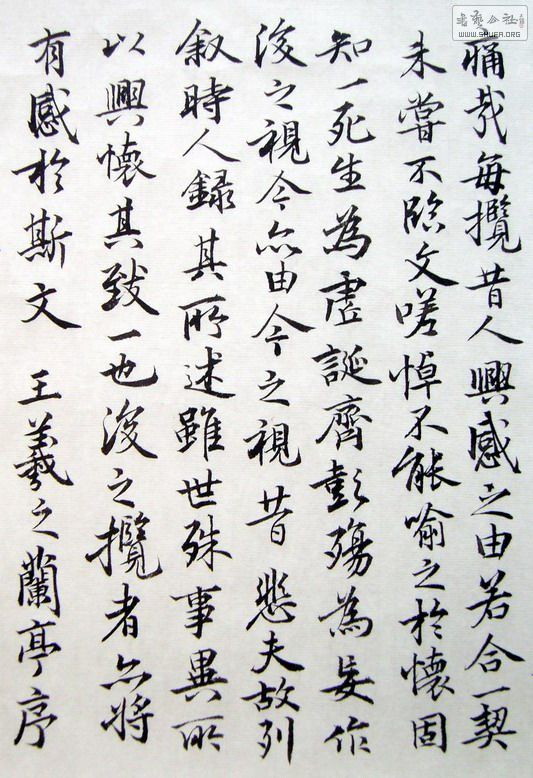 痛哉每攬昔人興感之由若合一契
未嘗不臨文嗟悼不能喻之於懷固
知一死生為虛誕齊彭殤為妄作
後之視今亦由今之視昔悲夫故列
叙時人録其所述雖世殊事異所
以興懷其致一也後之攬者亦將
有感於斯文 王羲之蘭亭序
書藝公社
WWW.SHUFA.ORG